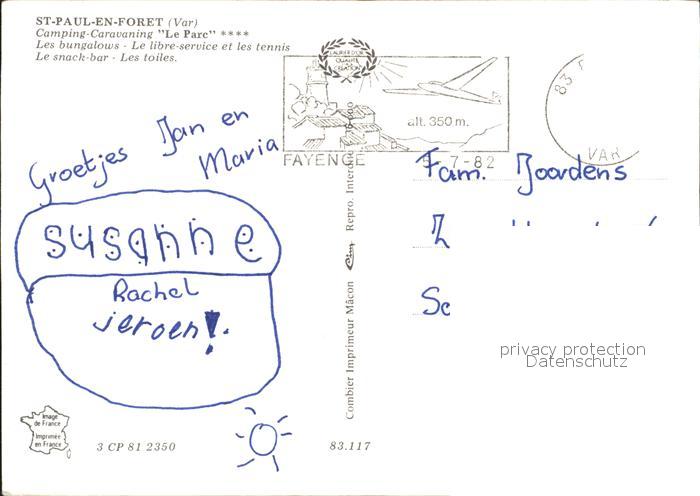 ST-PAUL-EN-FORET (Var)
Camping-Caravaning "Le Parc" ****
Les bungalows - Le libre-service et les tennis
Le snack-bar - Les toiles.
LAURIER D'OR
QUALITE
CREATION
alt. 350 m.
FAYENCE
5-7-82
83
VAR
Groetjes Jan en
Maria
susanne
Rachel
jeroen!.
Combier Imprimeur Mâcon
Cim
Repro.
Fam. Joordens
Sc
privacy protection
Datenschutz
Image
de France
Imprimée
en France
3 CP 81 2350
83.117